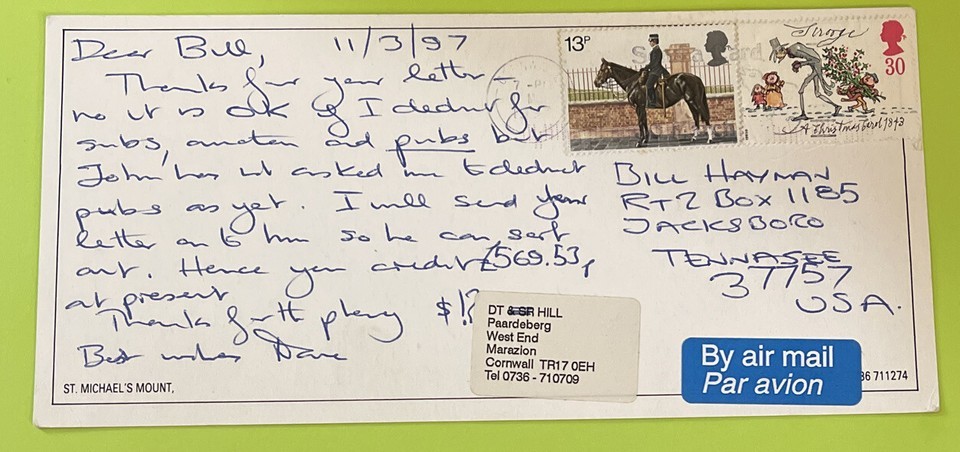 Dear Bill, 11/3/97
Thanks for your letter –
no it is OK if I deduct for
subs, auction and pubs but
John has not asked me to deduct
pubs as yet. I will send your
letter on to him so he can sort
out. Hence you credit £569.53p
at present $!?
Thanks for the
Best wishes Dave
ST. MICHAEL'S MOUNT,
13P
Scrooge
30
A Christmas Carol 1843
BILL HAYMAN
RT2 BOX 1185
JACKSBORO
TENNASEE
37757
USA.
DT & SR HILL
Paardeberg
West End
Marazion
Cornwall TR17 0EH
Tel 0736 - 710709
By air mail
Par avion
36 711274